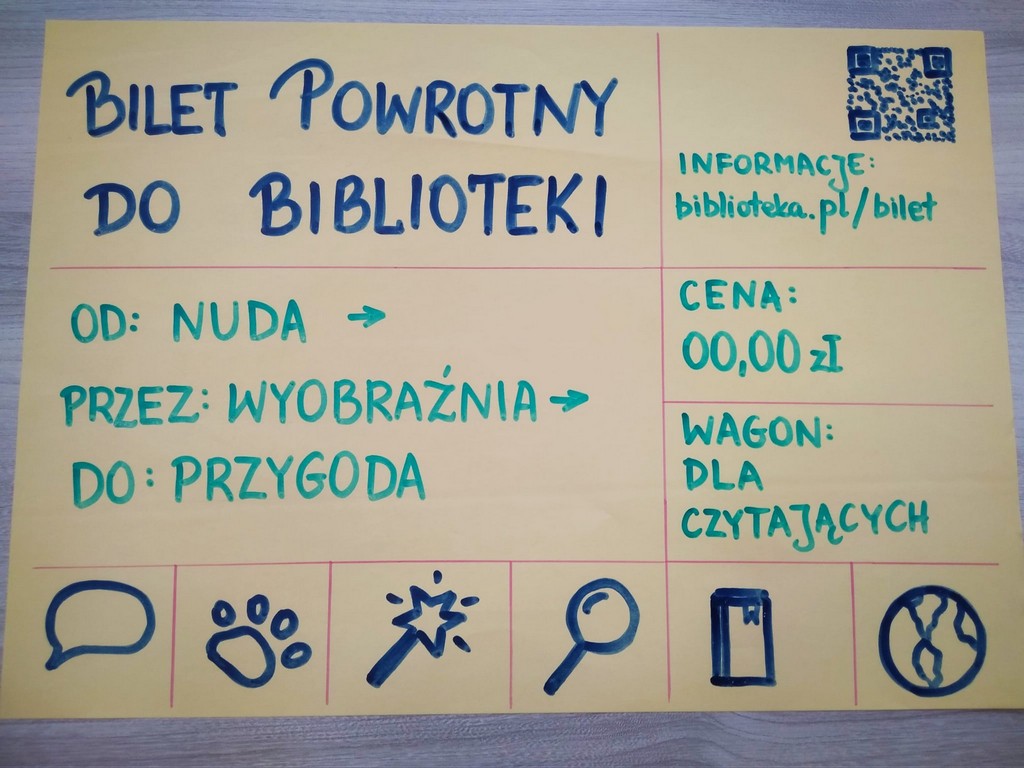 BILET POWROTNY
DO BIBLIOTEKI
INFORMACJE:
biblioteka.pl/bilet
OD: NUDA →
PRZEZ: WYOBRAŹNIA →
DO: PRZYGODA
CENA:
00,00 zł
WAGON:
DLA
CZYTAJĄCYCH